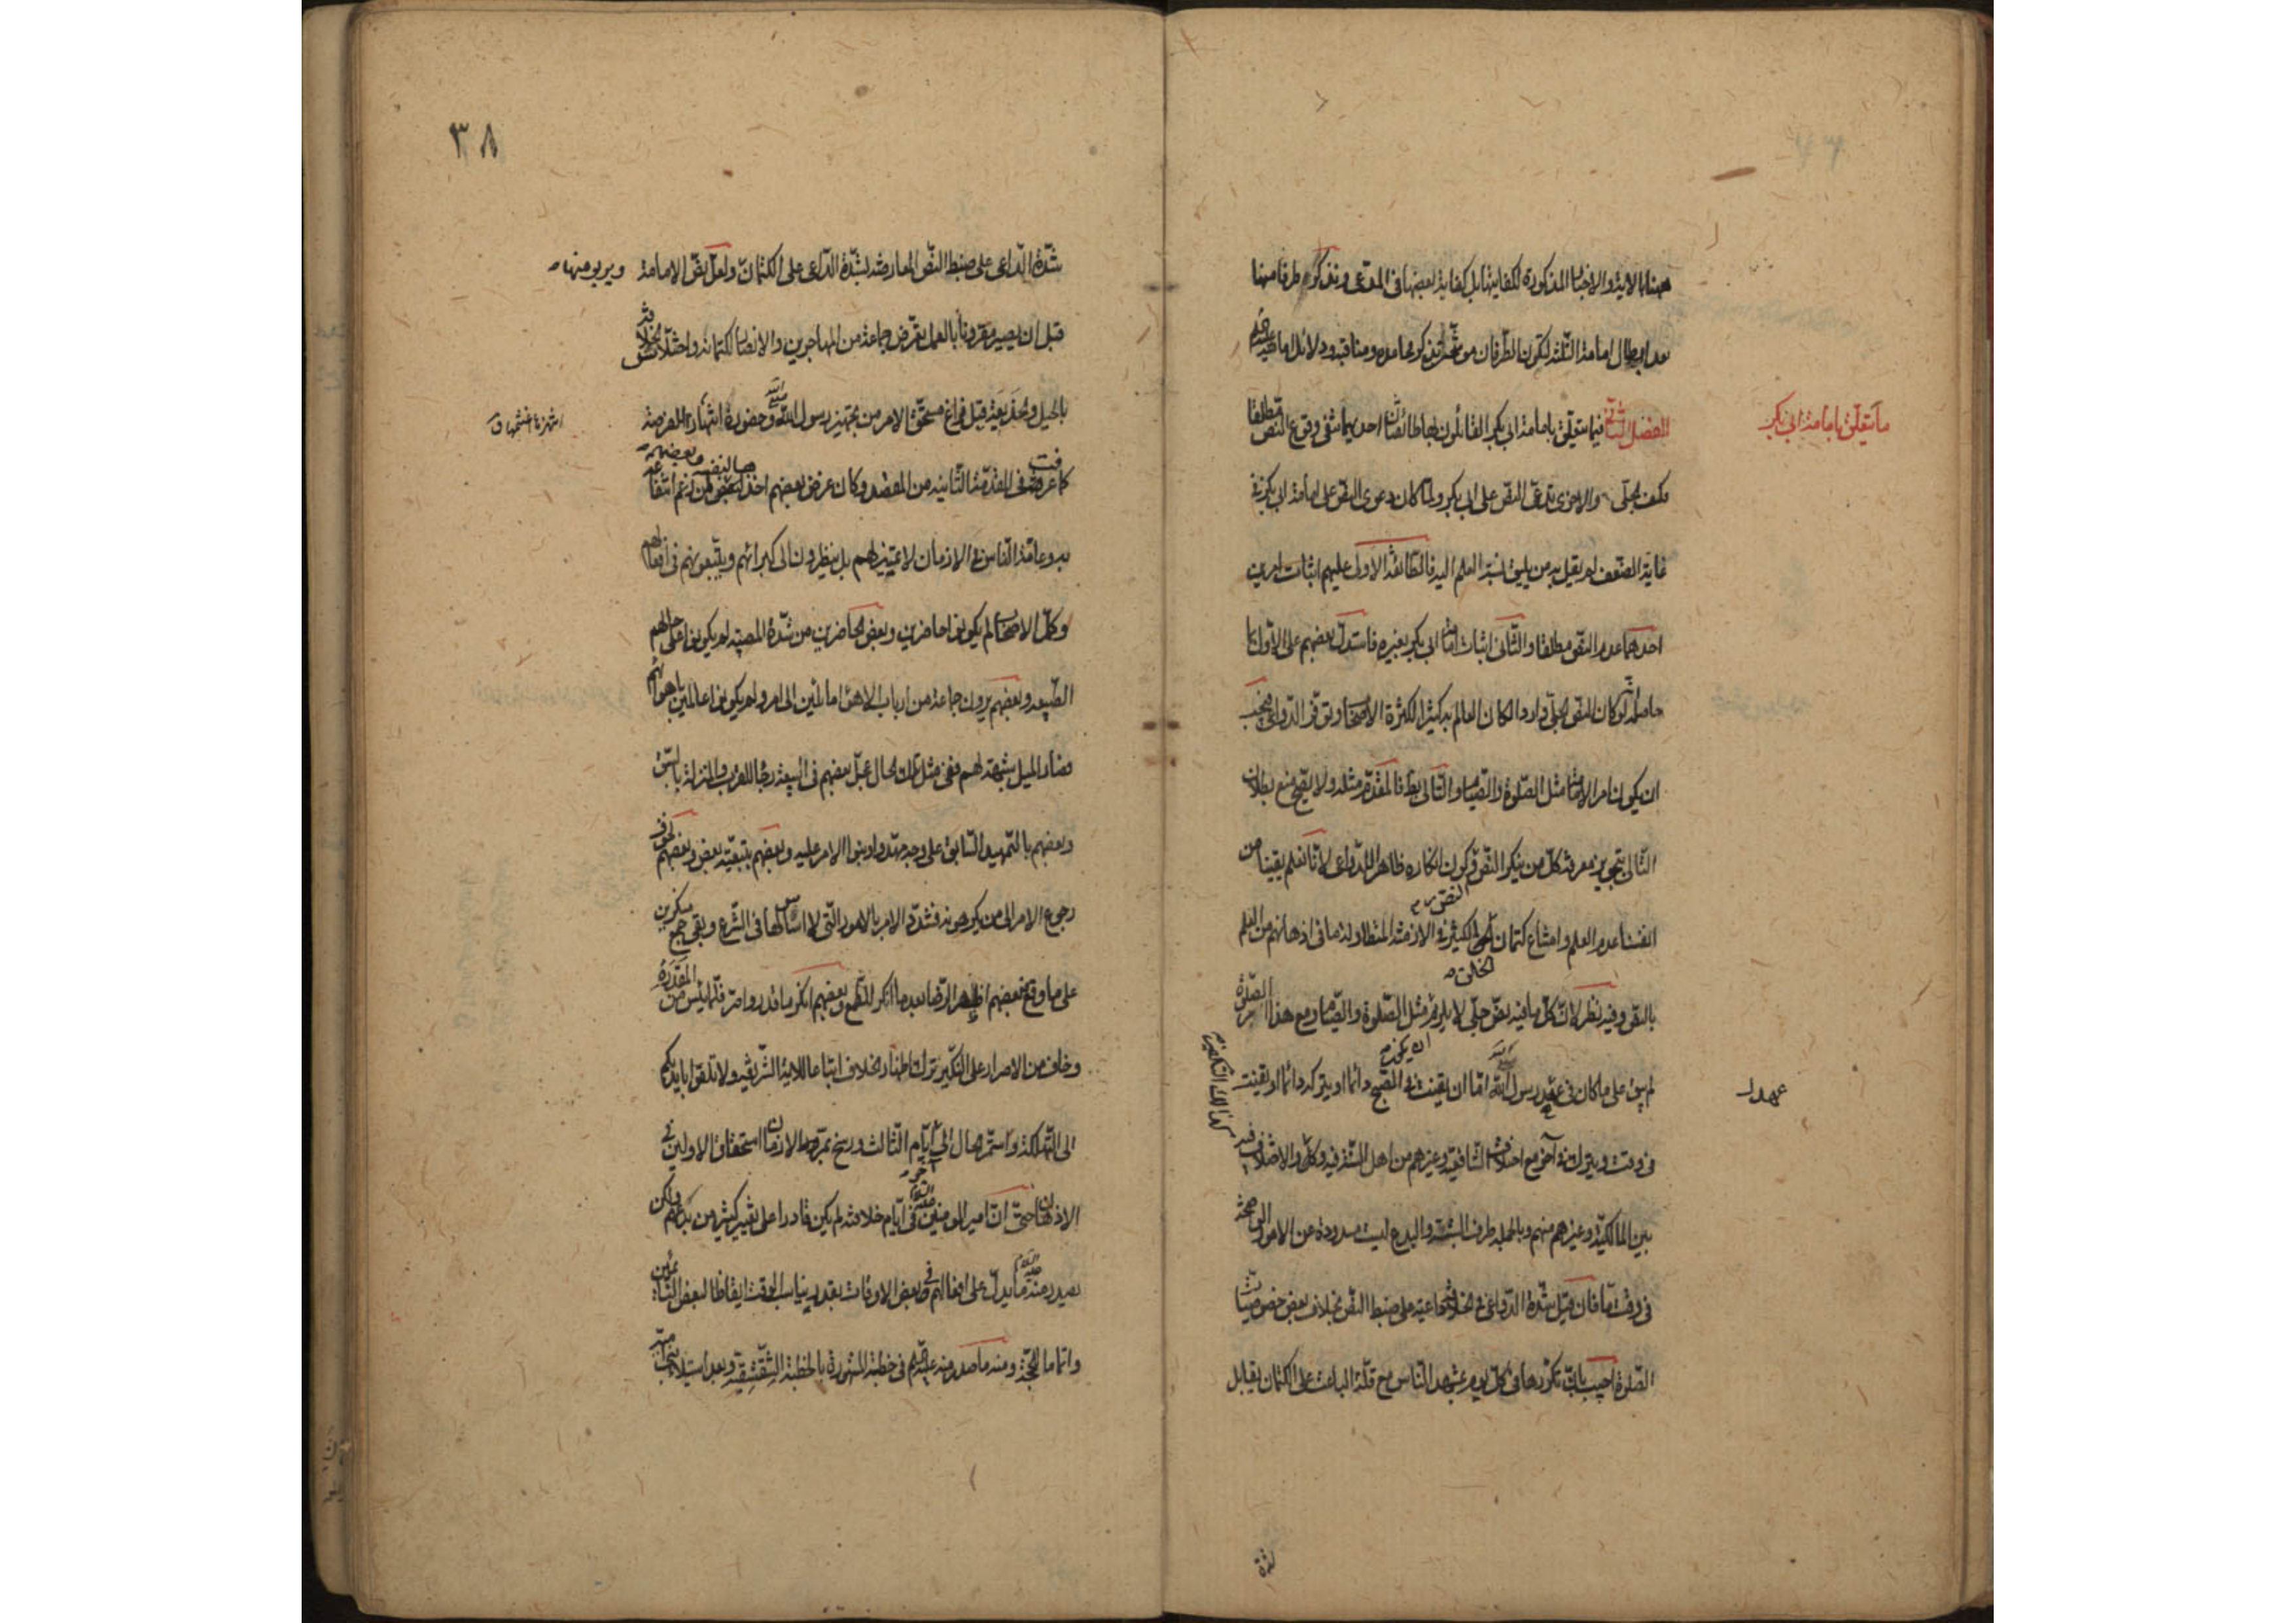 هيهنا بالاية والاخبار المذكورة لكفايتها بل كفاية بعضها فى المدعى ونذكر طرفا منها
بعد ابطال امامة الثلثة ليكون الطرفان موشحين بذكر محامده ومناقبه ودلائل امامته
ما يتعلق بامامة ابى بكر
الفصل الثانى فيما يتعلق بامامة ابى بكر القائلون بها طائفتان احديهما تنفى وقوع النص مطلقا
والاخرى تدعى النص على ابى بكر ولما كان دعوى النص على امامة ابى بكر فى
غاية الضعف لم يقل به من يليق نسبة العلم اليه فالطائفة الاولى عليهم اثبات امرين
احدهما عدم النص مطلقا والثانى اثبات امامة ابى بكر بغيره فاستدل بعضهم على الاول بما
حاصله انه لو كان النص الجلى واردا لكان العالم به كثيرا لكثرة الاصحاب وتوفر الدواعى فيجب
ان يكون امر الامامة مثل الصلوة والصيام والتالى بط فالمقدم مثله ولا يصح منع بطلان
التالى بتجويز معرفة كل من ينكر النص وكون انكاره ظاهرا للدواعى لانا نعلم يقينا من
انفسنا عدم العلم وامتناع كتمان الخلق الكثير فى الازمنة المتطاولة ما فى اذهانهم من العلم
بالنص وفيه نظر لان كل ما فيه نص جلى لا يلزم مثل الصلوة والصيام ومع هذا امر الصلوة
لم يبق على ما كان فى عهد رسول الله اما ان يقنت فى الصبح دائما او يتركه دائما او يقنت
عهد
فى وقت ويترك فى آخر مع اختلاف الشافعية وغيرهم من اهل السنة فيه وكذلك التكفير والاختلاف فيه
بين المالكية وغيرهم منهم وبالجملة طرق الشبهة والبدع ليست مسدودة عن الامور الواضحة
فى وقت ما فان قيل شدة الدواعى فى الخلافة داعية على ضبط النص بخلاف بعض خصوصيات
الصلوة اجيب بان تكررها فى كل يوم بمشهد الناس مع قلة الباعث على الكتمان يقابل
شدة
٣٨
شدة الداعى على ضبط النص المعارضة لشدة الداعى على الكتمان ولعل نص الامامة ويريد منها
قبل ان يصير مقرونا بالعمل تعرض جماعة من المهاجرين والانصار لكتمانه واختلاس
بالحيل والخديعة قبل فراغ مستحق الامر من تجهيز رسول الله وحضوره انتهازا للفرصة
كما عرفت فى المقدمة الثانية من المقصد وكان غرض بعضهم اخذها لنفسه
وعامة الناس فى الازمان لا تمييز لهم بل ينظرون الى كبرائهم ويتبعونهم فى افعالهم
وكل الاصحاب لم يكونوا حاضرين وبعض الحاضرين من شدة المصيبة لم يكونوا على حالهم
الطبيعة وبعضهم يرون جماعة من ارباب الاهواء مائلين الى امر ولم يكونوا عالمين باهوائهم
فصار الميل شبهة لهم ففى مثل تلك الحال عجل بعضهم فى البيعة رجاء للقرب والمنزلة بالسبق
وبعضهم بالتمهيد السابق على وجه مهدوا وبنوا الامر عليه وبعضهم بتبعية بعض وبعضهم لخوف
رجوع الامر الى من يكرهونه فشدد الامر بالامور التى لا اساس لها فى الشرع وبقى جمع منكرين
على ما وقع فبعضهم اظهر الرضا بعد ما انكر للطمع وبعضهم انكر ما قدر واصر فلما يئس من المقدرة
وخاف من الاصرار على النكير ترك اظهار الخلاف اتباعا للاية الشريفة ولا تلقوا بايديكم
الى التهلكة واستمر الحال الى ايام الثالث ورسخ بمرور الازمان استحقاق الاولين فى
الاذهان حتى ان امير المؤمنين فى ايام خلافته لم يكن قادرا على تغيير كثير من بدعهم ولكن
يصدر منه ما يدل على افعالهم فى بعض الاوقات بقدر يناسب الوقت ايقاظا لبعض النائمين
واتماما للحجة ومنه ما صدر منه فى خطبة المشهورة بالخطبة الشقشقية وبعد استيلاء بنى امية